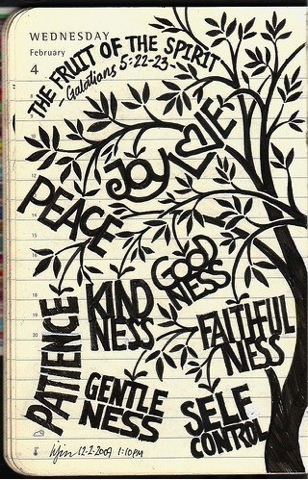 WEDNESDAY
February
4
THE FRUIT OF THE SPIRIT
- Galatians 5:22-23 -
LOVE
JOY
PEACE
GOOD
NESS
KIND
NESS
PATIENCE
FAITHFUL
NESS
GENTLE
NESS
SELF
CONTROL
12-2-2009 1:10PM